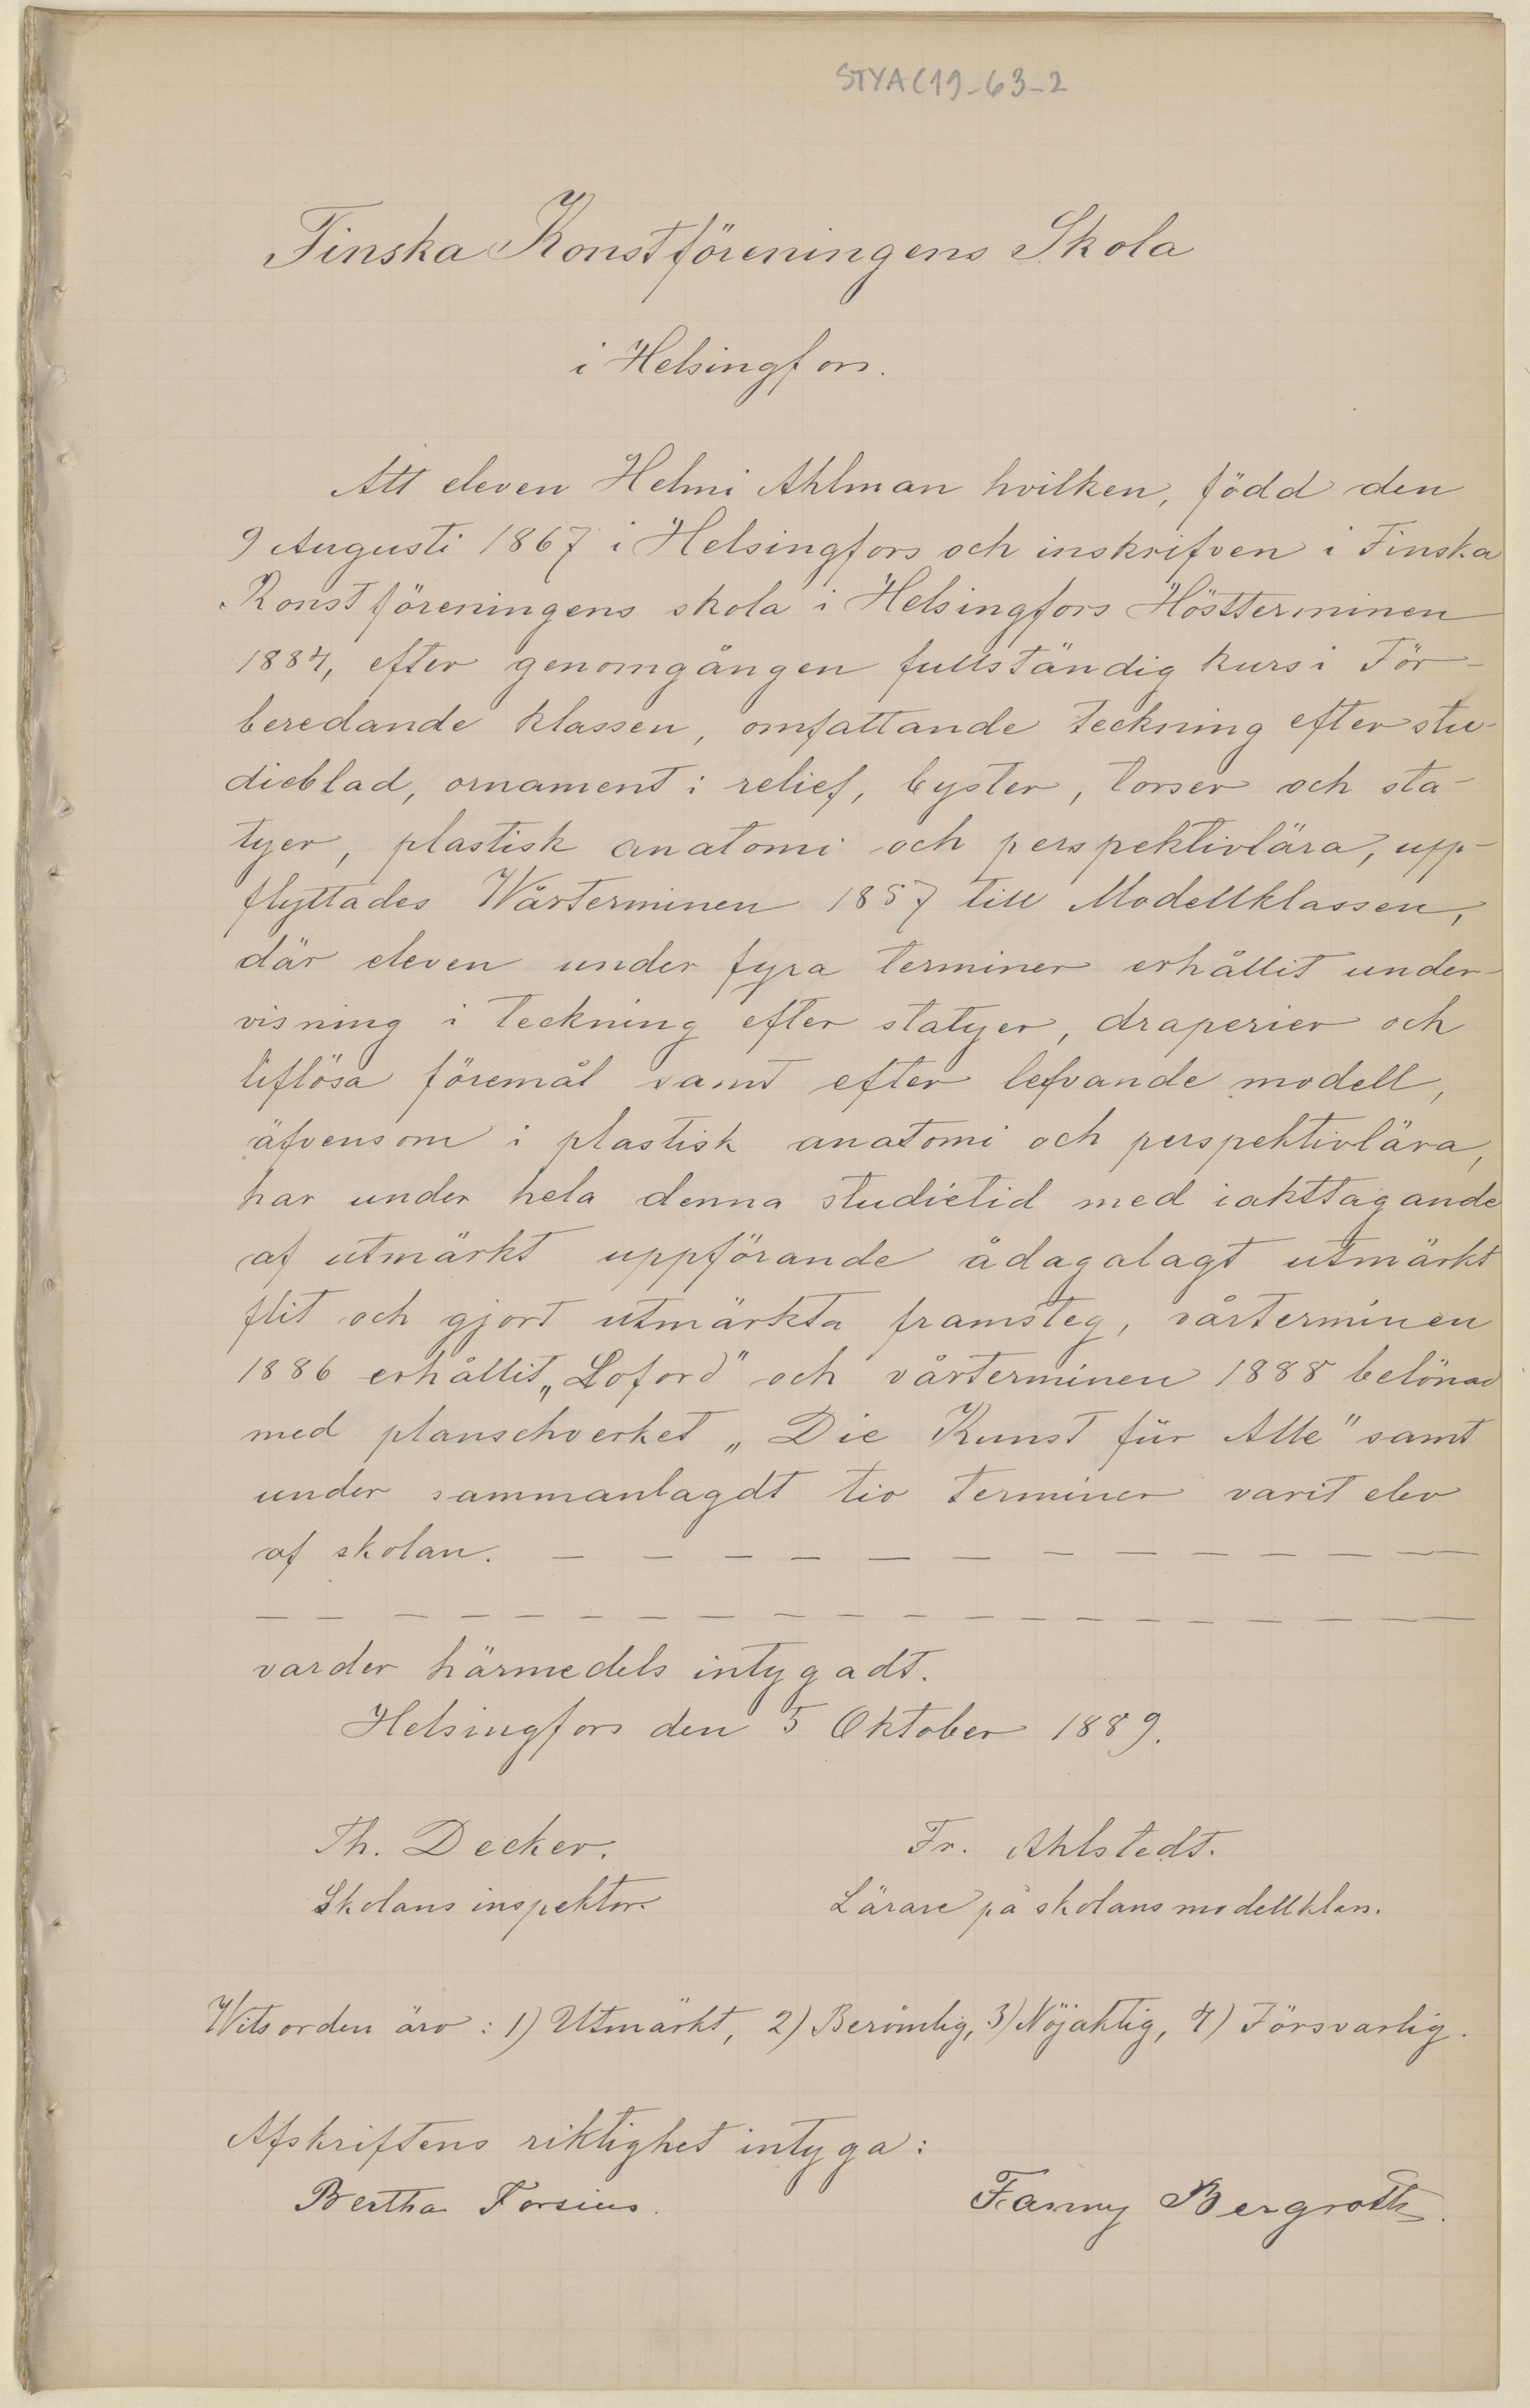 STYA(19-63-2
Finska Konstföreningens Skola
i Helsingfors.
Att eleven Helmi Ahlman hvilken, född den
9 Augusti 1867 i Helsingfors och inskrifven i Finska
Konstföreningens skola i Helsingfors Höstterminen
1884, efter genomgången fullständig kurs i För-
beredande klassen, omfattande teckning efter stu-
dieblad, ornament i relief, byster, torser och sta-
tyer, plastisk anatomi och perspektivlära, upp-
flyttades Wårterminen 1887 till Modellklassen,
där eleven under fyra terminer erhållit under-
visning i teckning efter statyer, draperier och
liflösa föremål samt efter lefvande modell,
äfvensom i plastisk anatomi och perspektivlära,
har under hela denna studietid med iakttagande
af utmärkt uppförande ådagalagt utmärkt
flit och gjort utmärkta framsteg, vårterminen
1886 erhållit „Loford" och vårterminen 1888 belönad
med planschverket „Die Kunst für Alle" samt
under sammanlagdt tio terminer varit elev
af skolan. — — — — — — — — — — — —
— — — — — — — — — — — — — — — — — —
varder härmedels intygadt.
Helsingfors den 5 Oktober 1889.
Th. Decker. Fr. Ahlstedt.
Skolans inspektor Lärare på skolans modellklass.
Witsorden äro: 1) Utmärkt, 2) Berömlig, 3) Nöjaktig, 4) Försvarlig.
Afskriftens riktighet intyga:
Bertha Forsius. Fanny Bergroth.